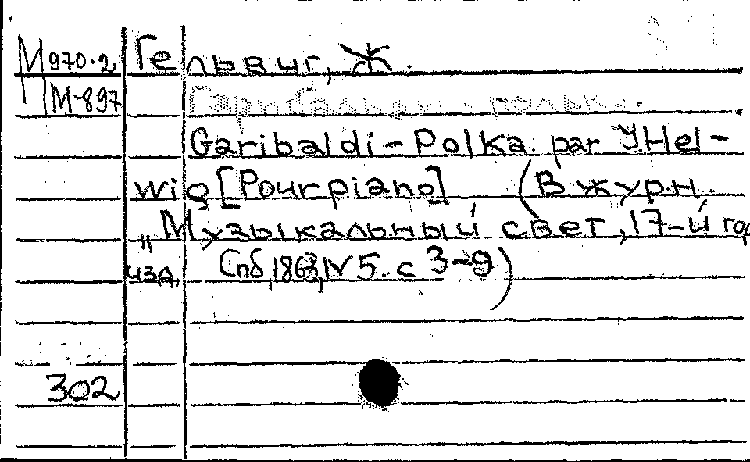 М 970.2 Гельвиг, Ж.
М-897 Гарибальди - полька.
Garibaldi-Polka par J Hel-
wig [Pour piano] (В журн.
„Музыкальный свет, 17-й год
изд. Спб, 1863, N 5. с 3-9)
302